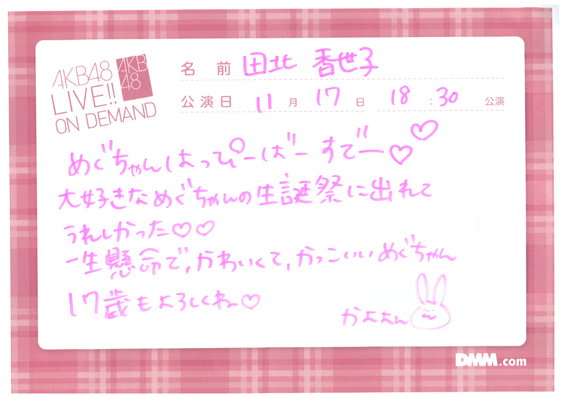 AKB48
LIVE!!
ON DEMAND
AKB
48
名 前 田北 香世子
公演日 11 月 17 日 18 : 30 公演
めぐちゃんはっぴーばーすでー♡♡
大好きなめぐちゃんの生誕祭に出れて
うれしかった♡♡
一生懸命で,かわいくて,かっこいいめぐちゃん
17歳もよろしくねー♡
かよよん
DMM.com